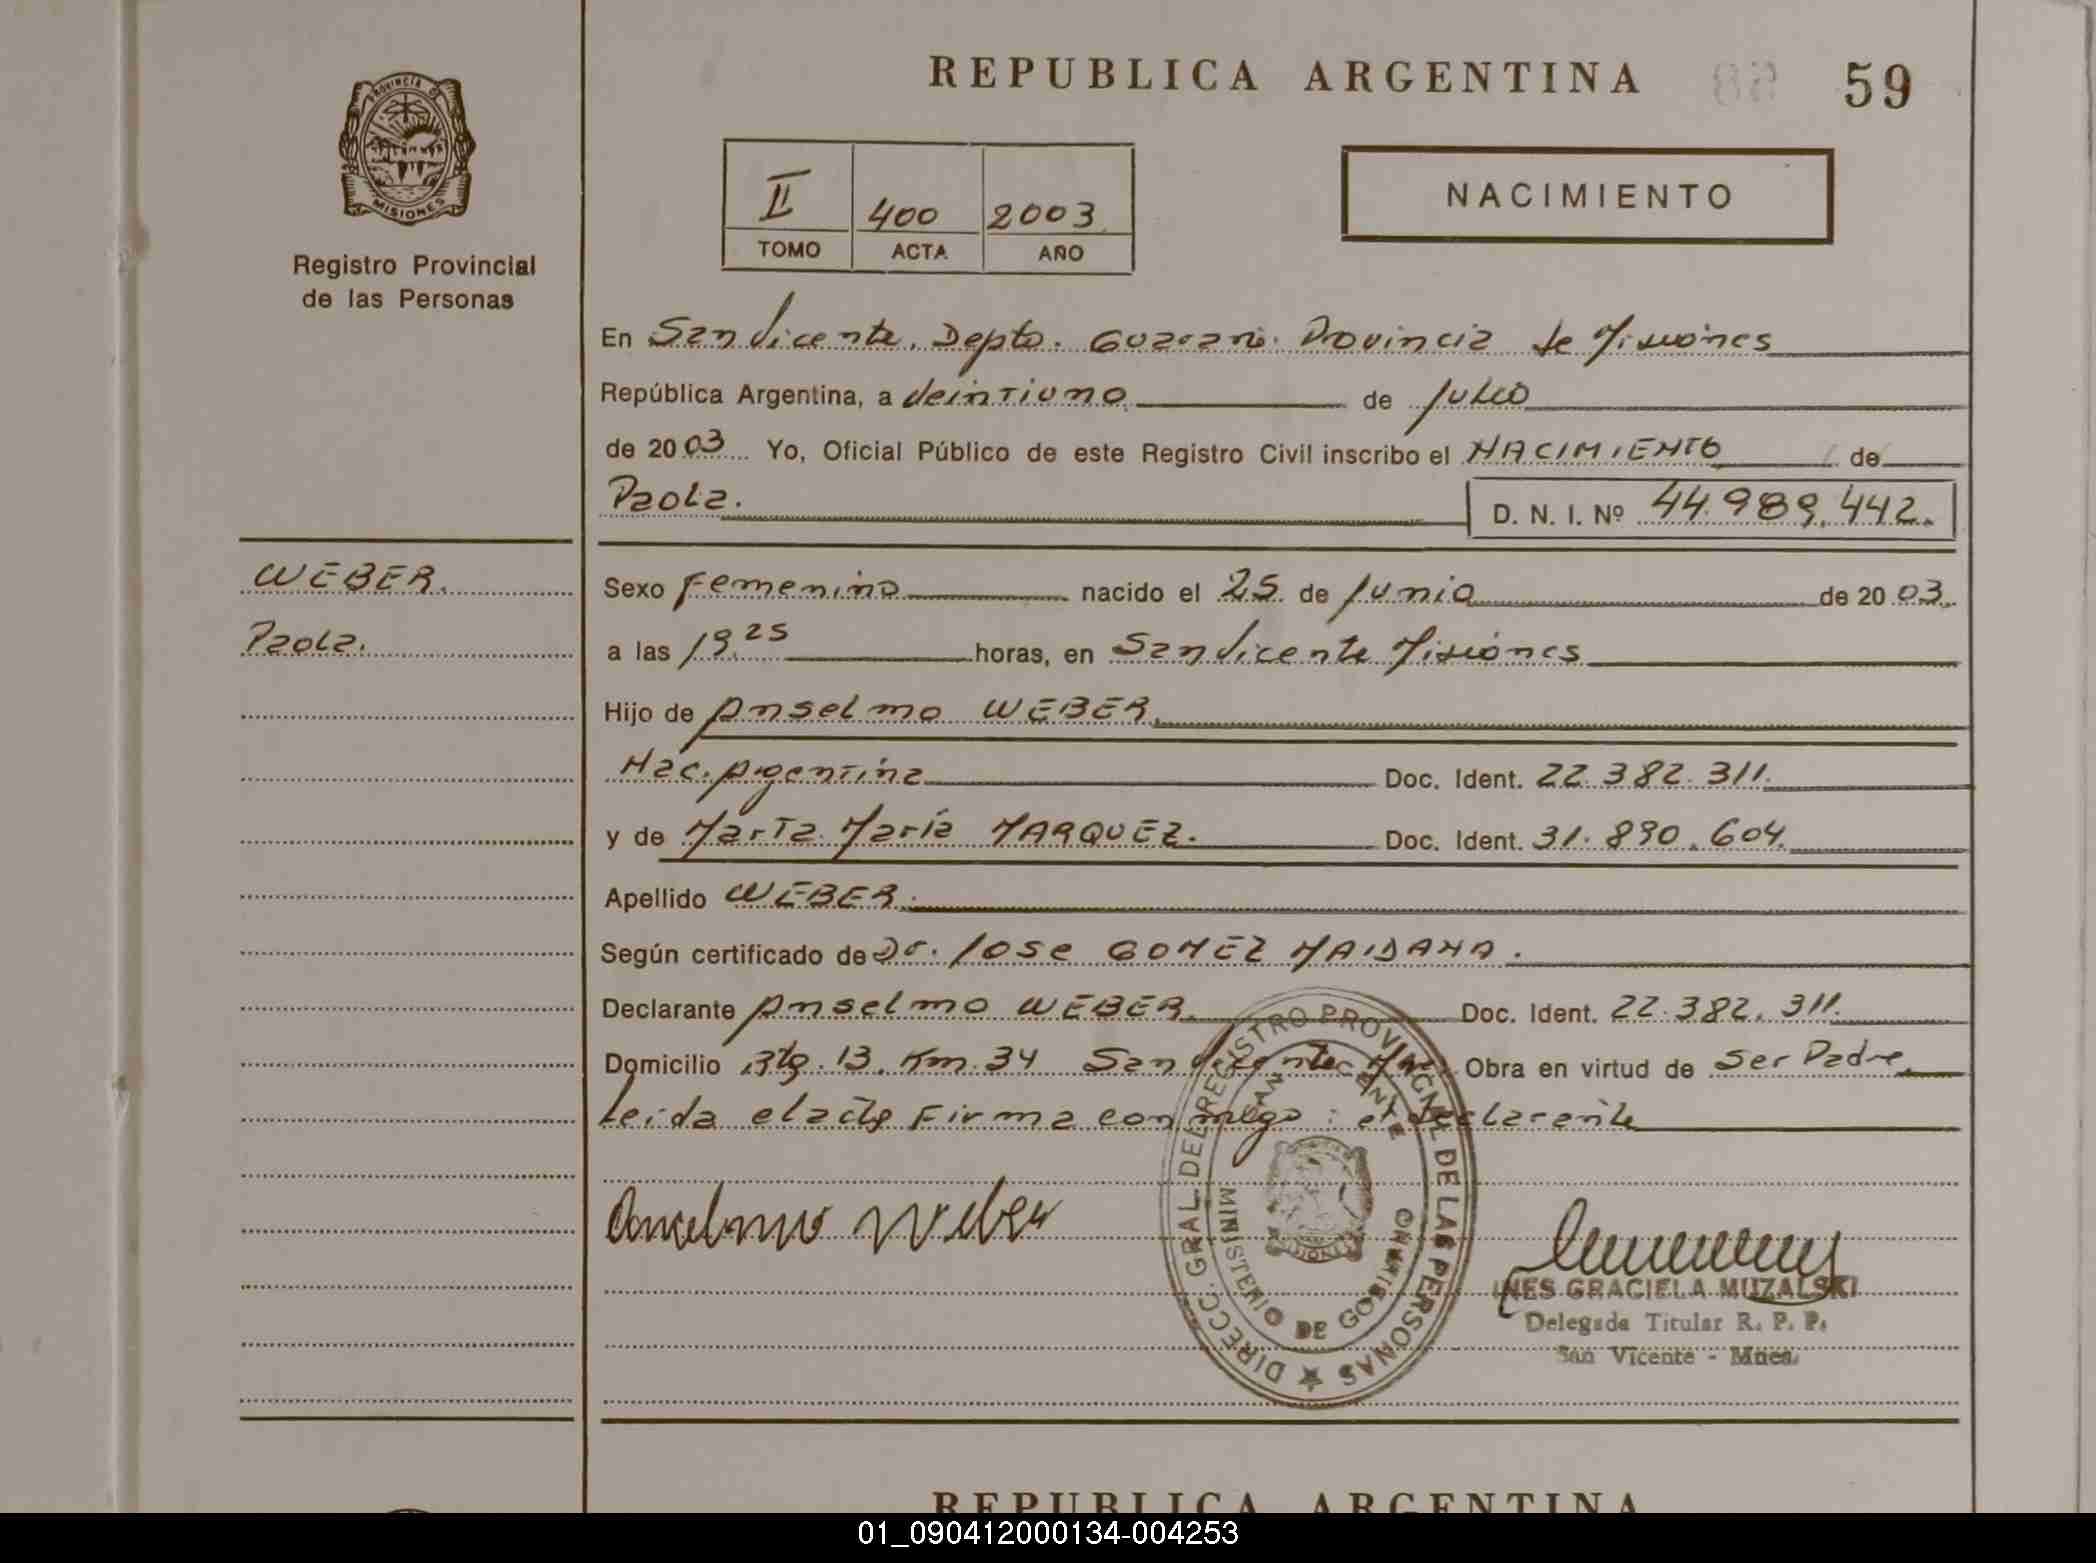 REPUBLICA ARGENTINA 59
PROVINCIA D MISIONES
Registro Provincial
de las Personas
II 400 2003
TOMO ACTA AÑO
NACIMIENTO
En San Vicente. Depto. Guarani. Provincia de Misiones
República Argentina, a Veintiuno de Julio
de 2003 Yo, Oficial Público de este Registro Civil inscribo el NACIMIENTO de
Paola. D. N. I. Nº 44.989.442.
WEBER.
Paola.
Sexo Femenino nacido el 25 de Junio de 2003.
a las 19.25 horas, en San Vicente Misiones
Hijo de Anselmo WEBER.
Nac. Argentina Doc. Ident. 22.382.311.
y de Marta María MARQUEZ. Doc. Ident. 31.890.604.
Apellido WEBER.
Según certificado de Dr. Jose GOMEZ MAIDANA.
Declarante Anselmo WEBER. Doc. Ident. 22.382.311.
Domicilio Km. 34 San Vicente Obra en virtud de Ser Padre.
Leida el acta Firma conmigo: el declarante
Anselmo Weber
DIRECC. GRAL. DEL REGISTRO PROVINCIAL DE LAS PERSONAS
SAN VICENTE
MINISTERIO DE GOBIERNO
MISIONES
INES GRACIELA MUZALSKI
Delegada Titular R. P. P.
San Vicente - Mnes.
REPUBLICA ARGENTINA
01_090412000134-004253